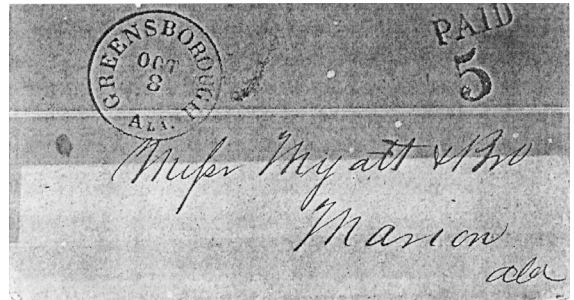 GREENSBOROUGH
OCT
8
ALA.
PAID
5
Messr Myatt & Bro
Marion
Ala